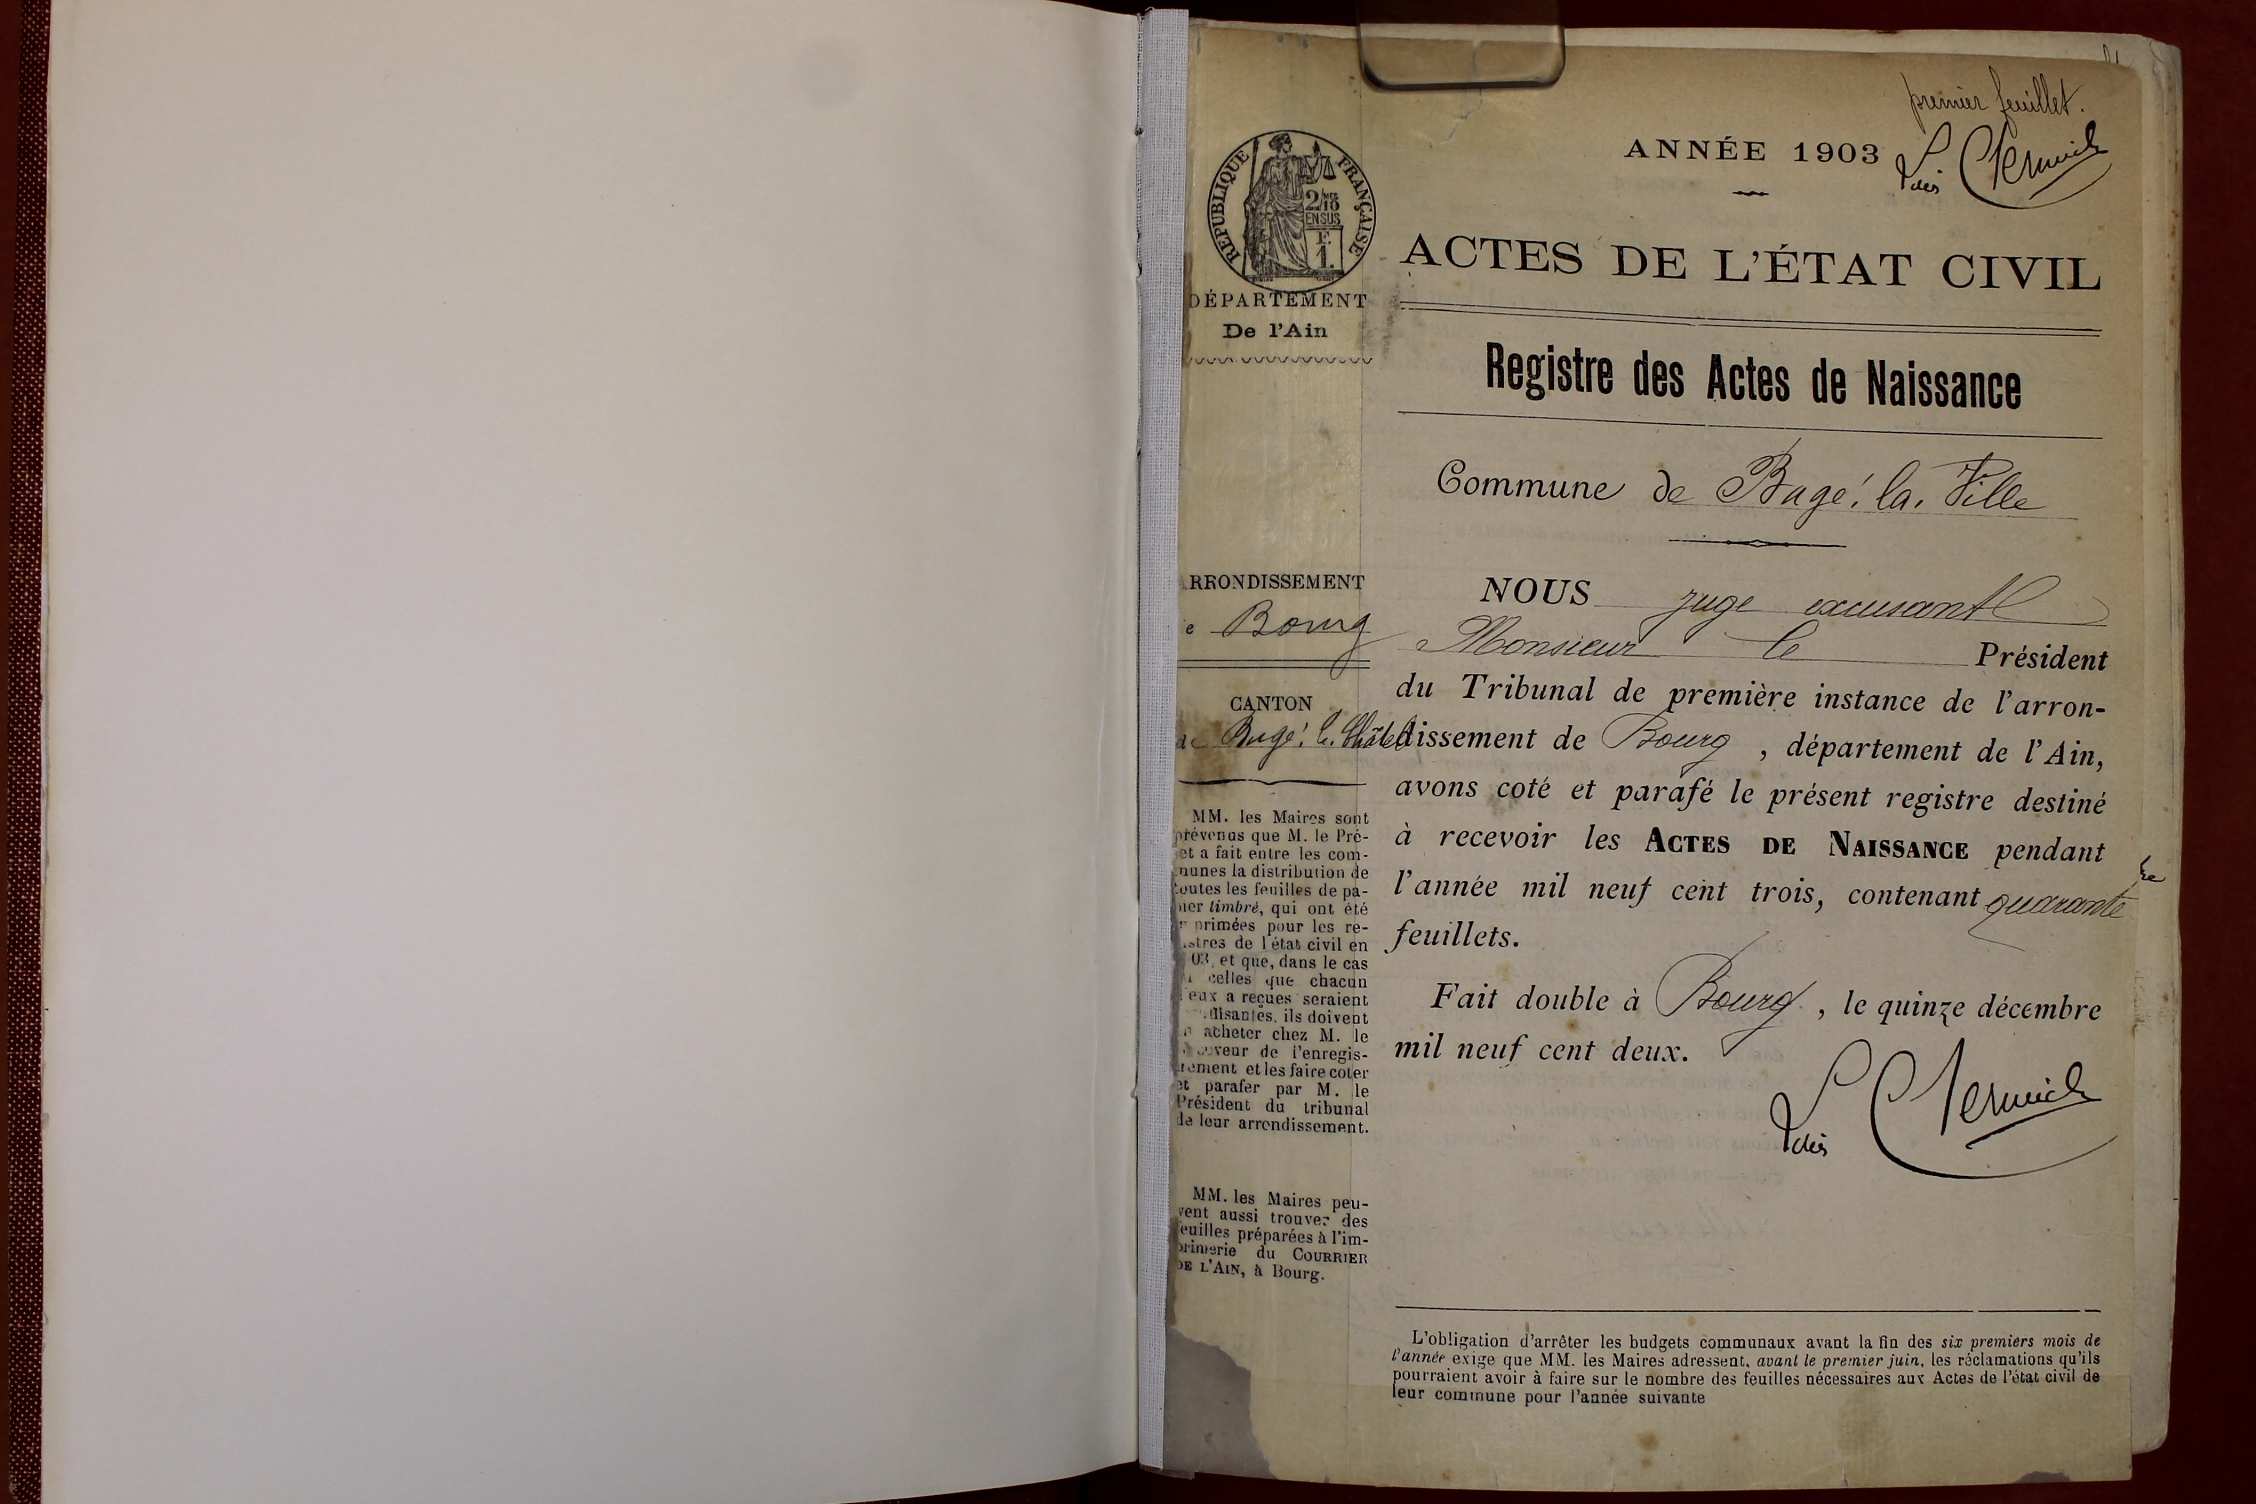 premier feuillet.
ANNÉE 1903
RÉPUBLIQUE FRANÇAISE
2/10
EN SUS
F.
1.
DÉPARTEMENT
De l'Ain
ACTES DE L'ÉTAT CIVIL
Registre des Actes de Naissance
Commune de Bagé. la. Ville
ARRONDISSEMENT
e Bourg
CANTON
de Bagé. le. Châtel
MM. les Maires sont
prévenus que M. le Pré-
et a fait entre les com-
munes la distribution de
toutes les feuilles de pa-
pier timbré, qui ont été
primées pour les re-
istres de l'état civil en
03, et que, dans le cas
celles que chacun
d'eux a reçues seraient
ffisantes, ils doivent
acheter chez M. le
ceveur de l'enregis-
trement et les faire coter
et parafer par M. le
Président du tribunal
de leur arrondissement.
MM. les Maires peu-
vent aussi trouver des
feuilles préparées à l'im-
primerie du COURRIER
DE L'AIN, à Bourg.
NOUS juge excusant
Monsieur le Président
du Tribunal de première instance de l'arron-
dissement de Bourg, département de l'Ain,
avons coté et parafé le présent registre destiné
à recevoir les ACTES DE NAISSANCE pendant
l'année mil neuf cent trois, contenant quarante
feuillets.
Fait double à Bourg, le quinze décembre
mil neuf cent deux.
L'obligation d'arrêter les budgets communaux avant la fin des six premiers mois de
l'année exige que MM. les Maires adressent, avant le premier juin, les réclamations qu'ils
pourraient avoir à faire sur le nombre des feuilles nécessaires aux Actes de l'état civil de
leur commune pour l'année suivante